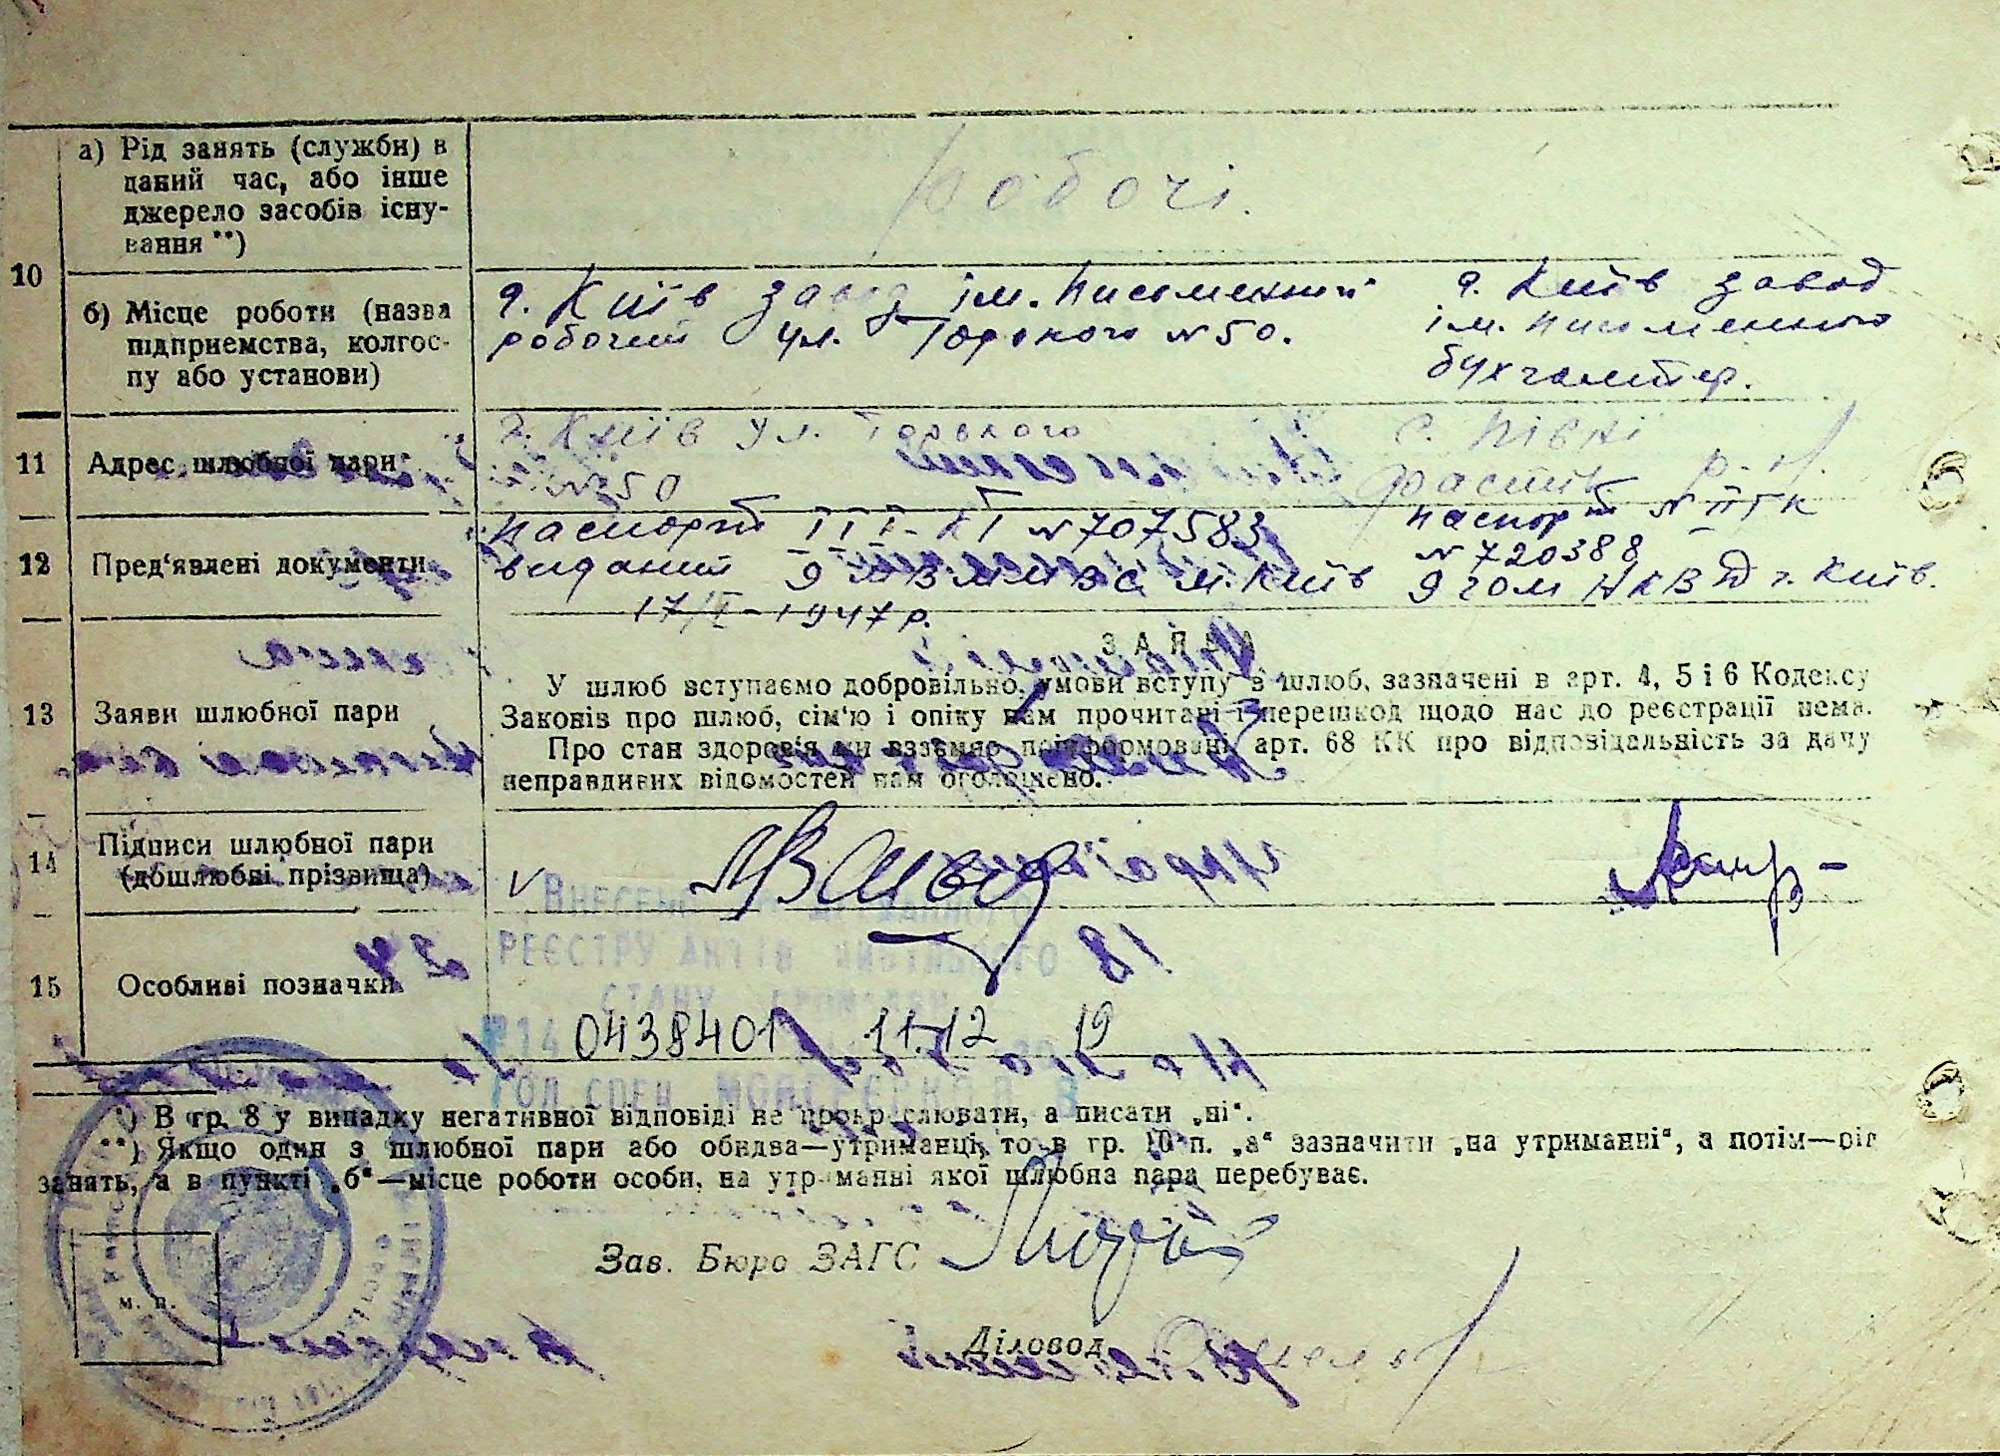 10
а) Рід занять (служби) в
даний час, або інше
джерело засобів існу-
вання **)
робочі.
б) Місце роботи (назва
підприємства, колгос-
пу або установи)
г. Київ завод ім. Письменний
робочий ул. Горького № 50.
г. Київ завод
ім. Письменного
бухгалтер.
11
Адрес шлюбної пари
г. Київ ул. Горького
№ 50
с. Півні
Фастів р-н.
12
Пред'явлені документи
паспорт III-КТ № 707583
виданий 9 м. Київ
17/I-1947 р.
паспорт №
№ 720388
9 НКВД г. Київ.
13
Заяви шлюбної пари
ЗАЯВА
У шлюб вступаємо добровільно, умови вступу в шлюб, зазначені в арт. 4, 5 і 6 Кодексу
Законів про шлюб, сім'ю і опіку нам прочитані і перешкод щодо нас до реєстрації нема.
Про стан здоров'я ми взаємно поінформовані, арт. 68 КК про відповідальність за дачу
неправдивих відомостей нам оголошено.
14
Підписи шлюбної пари
(дошлюбні прізвища)
V
15
Особливі позначки
Внесено до Державного
реєстру актів цивільного
стану громадян
№ 14 0438401 11.12 2019
Гол. спец.
*) В гр. 8 у випадку негативної відповіді не прокреслювати, а писати „ні“.
**) Якщо один з шлюбної пари або обидва—утриманці, то в гр. 10 п. „а“ зазначити „на утриманні“, а потім—рід
занять, а в пункті „б“—місце роботи особи, на утриманні якої шлюбна пара перебуває.
Зав. Бюро ЗАГС
м. п.
Діловод